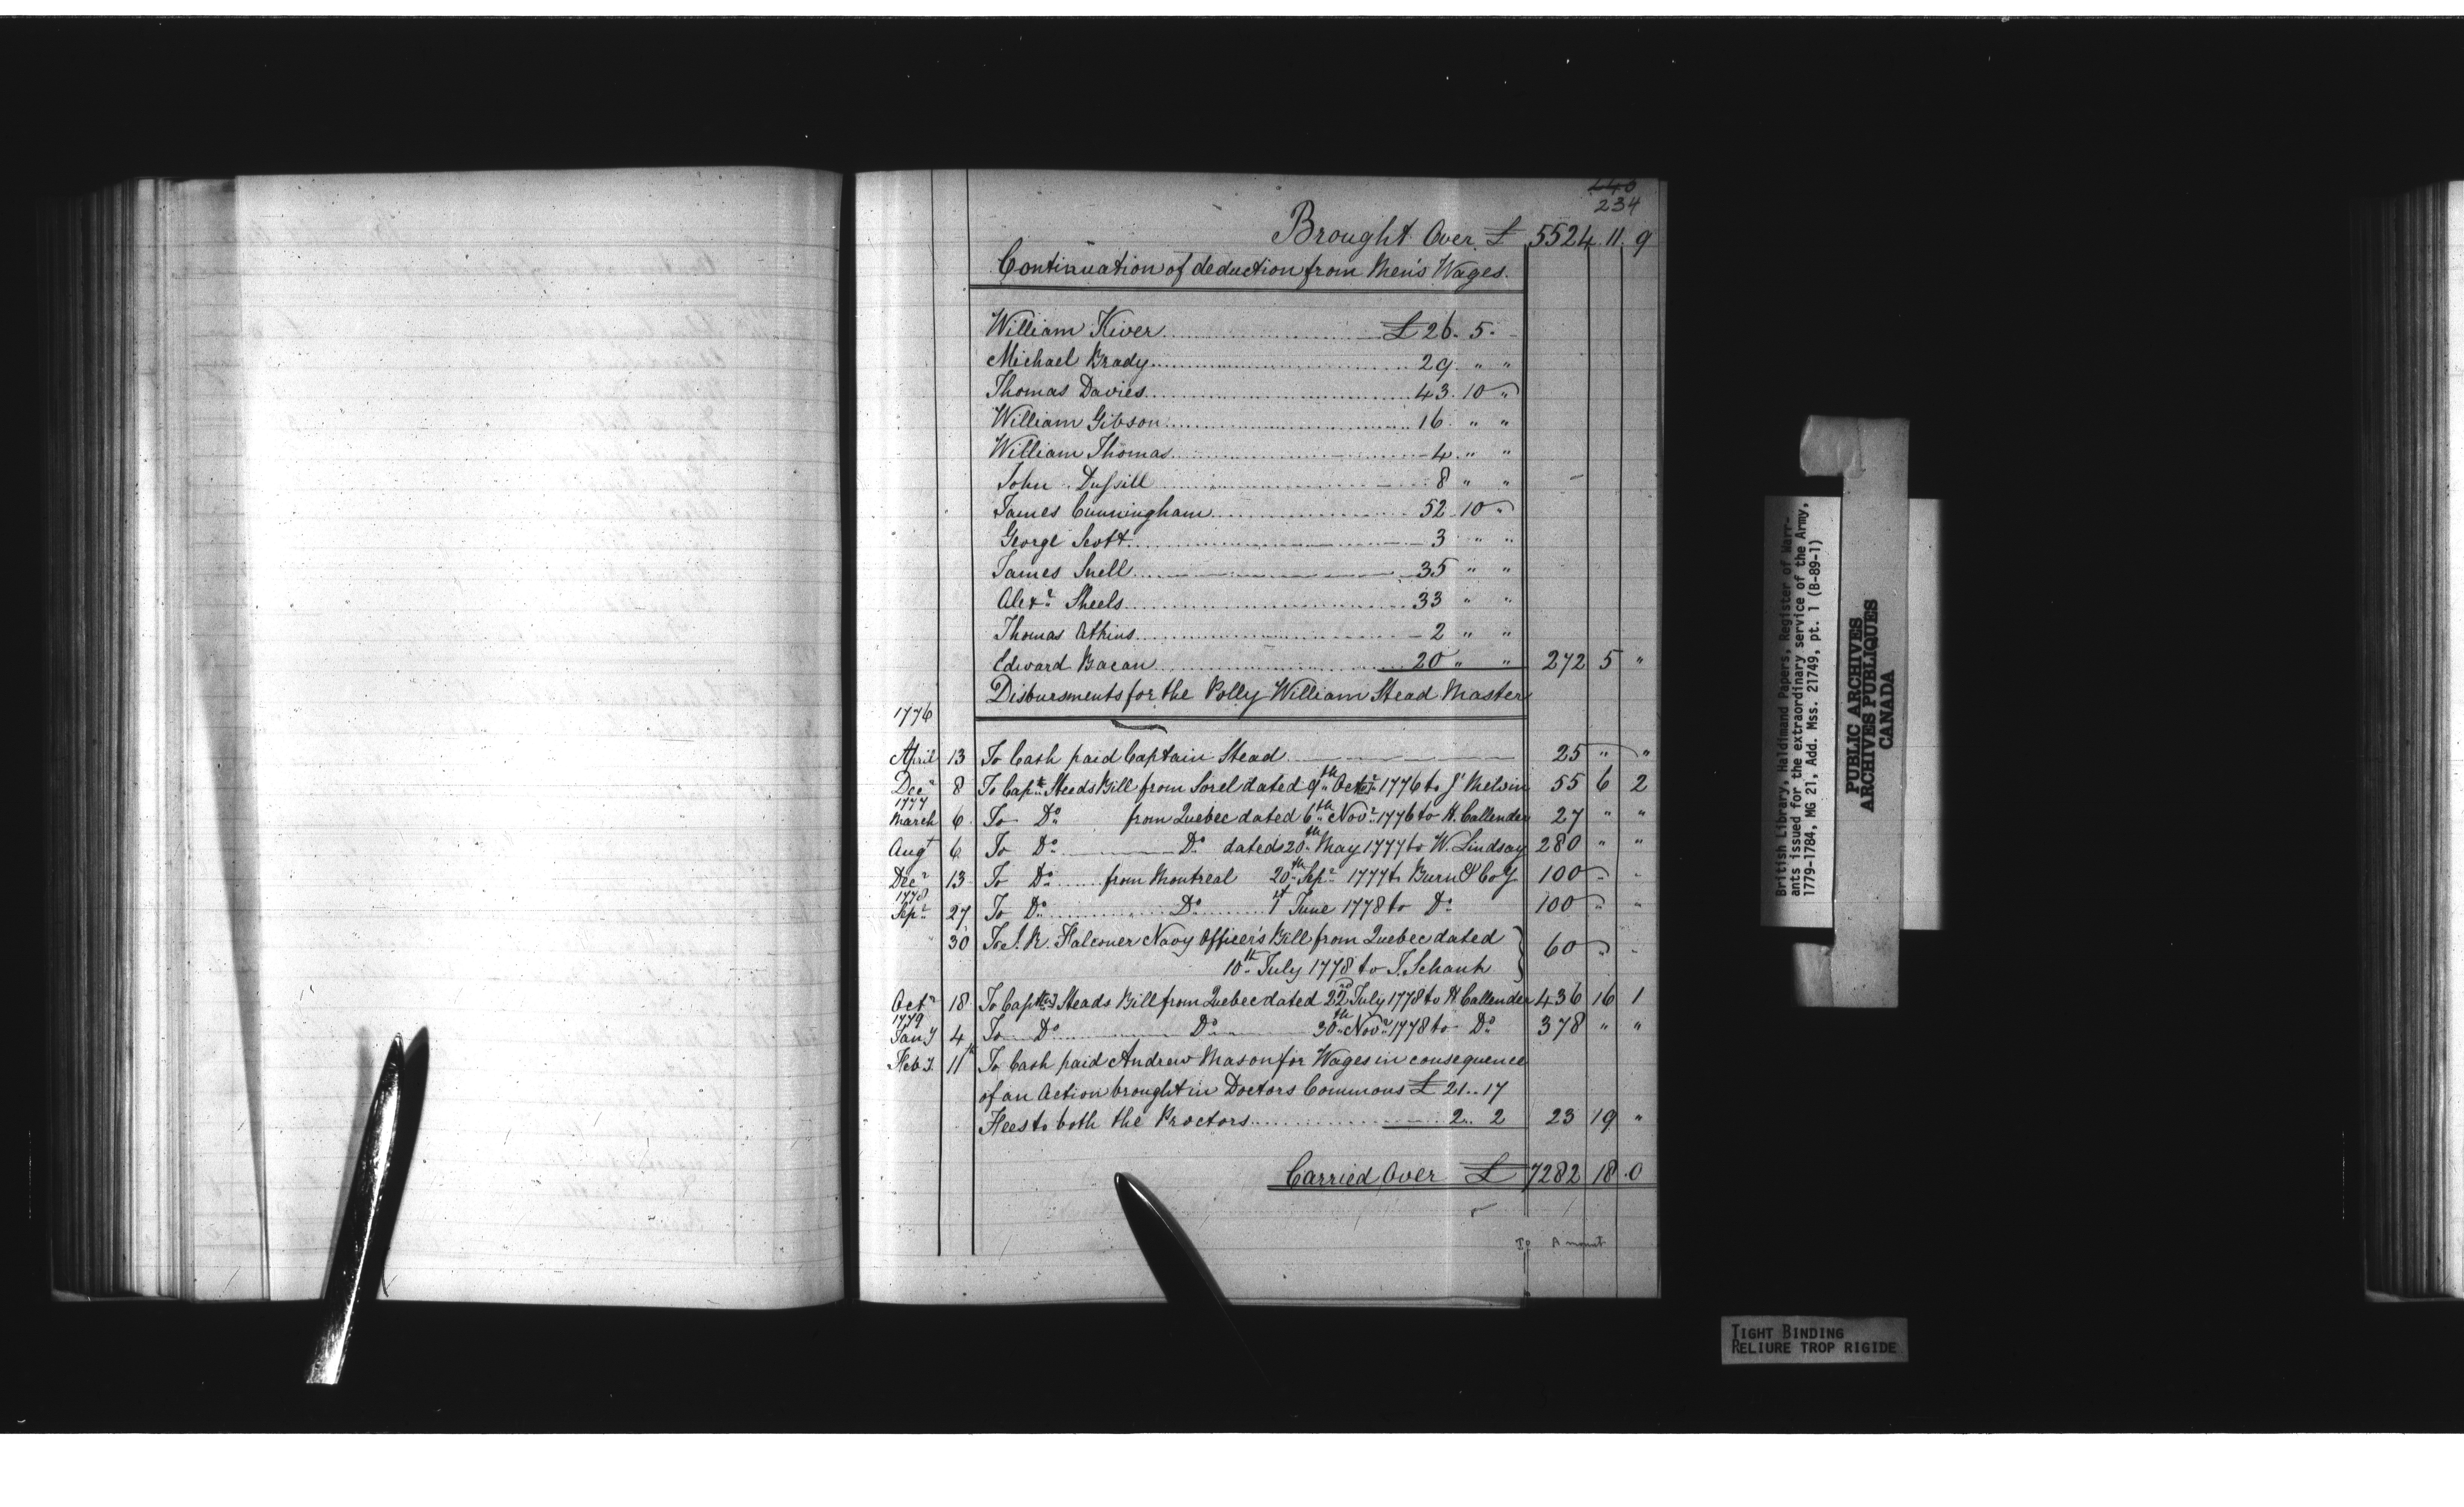 240
234
Brought Over £ 5524. 11. 9
Continuation of deduction from Men's Wages.
William Kiver £ 26. 5. -
Michael Brady 29 " "
Thomas Davies 43. 10 "
William Gibson 16 " "
William Thomas 4 " "
John Dussill 8 " "
James Cunningham 52 10 "
George Scott 3 " "
James Snell 35 " "
Alexr Sheels 33 " "
Thomas Atkins 2 " "
Edward Bacan 20 " " 272 5 "
Disbursments for the Polly William Stead Master
1776
April 13 To Cash paid Captain Stead 25 " "
Decr 8 To Capts Steads Bill from Sorel dated 9th Octr 1776 to J Melvin 55 6 2
1777
March 6 To Do from Quebec dated 6th Novr 1776 to H. Callender 27 " "
Augt 6 To Do Do dated 20th May 1777 to W. Lindsay 280 " "
Decr 13 To Do from Montreal 20th Sepr 1777 to Burn & Coy 100 " "
1778
Sepr 27 To Do Do 1st June 1778 to Do 100 " "
30 To J. R. Falconer Navy Officer's Bill from Quebec dated
10th July 1778 to J. Schank 60 " "
Octr 18 To Capts Steads Bill from Quebec dated 22nd July 1778 to H Callender 436 16 1
1779
Jany 4 To Do Do 30th Novr 1778 to Do 378 " "
Feby 11th To Cash paid Andrew Mason for Wages in consequence
of an Action brought in Doctors Commons £ 21.. 17
Fees to both the Proctors 2.. 2 23 19 "
Carried Over £ 7282 18. 0
Amount
British Library, Haldimand Papers, Register of Warr-
ants issued for the extraordinary service of the Army,
1779-1784, MG 21, Add. Mss. 21749, pt. 1 (B-89-1)
PUBLIC ARCHIVES
ARCHIVES PUBLIQUES
CANADA
TIGHT BINDING
RELIURE TROP RIGIDE